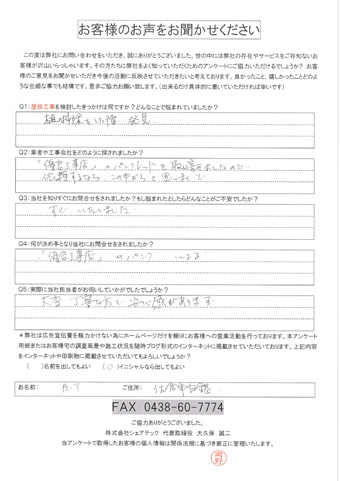 お客様のお声をお聞かせください
この度は弊社にお問い合わせをいただき、誠にありがとうございました。世の中には弊社の存在やサービスをご存知ないお
客様が沢山いらっしゃいます。その方たちに弊社をよく知っていただくためのアンケートにご協力いただけるでしょうか? お客
様のご意見をお聞かせいただき今後の活動に反映させていただきたいと考えております。良かったこと、嬉しかったことどのよ
うな些細な事でも結構です。是非ご協力お願い致します。(出来るだけ具体的に書いていただければ幸いです)
Q1:屋根工事を検討したきっかけは何ですか?どんなことで悩まれていましたか?
掃除をした際 発見
Q2:業者や工事会社をどのように探されましたか?
「街の屋根やさん」のパンフレットを
この中からと思いまして
Q3:当社を知りすぐにお問合せをされましたか?もし悩まれたとしたらどんなことがご不安でしたか?
すぐ いたしました
Q4:何が決め手となり当社にお問合せをされましたか?
のパンフ
Q5:実際に当社担当者がお伺いしていかがでしたでしょうか?
大変 丁寧な方で 安心感があります
*弊社は広告宣伝費を極力かけない為にホームページだけを頼りにお客様への営業活動を行っております。本アンケート
用紙またはお客様宅の調査風景や施工状況を随時ブログ形式のインターネットに掲載させていただいております。上記内容
をインターネットや印刷物に掲載させていただいてもよろしいでしょうか?
( )名前を出してもよい (○)イニシャルなら出してもよい
お名前: A.T ご住所:
FAX 0438-60-7774
ご協力ありがとうございました。
株式会社シェアテック 代表取締役 大久保 誠二
当アンケートで取得したお客様の個人情報は関係法規に基づき厳正に管理いたします。